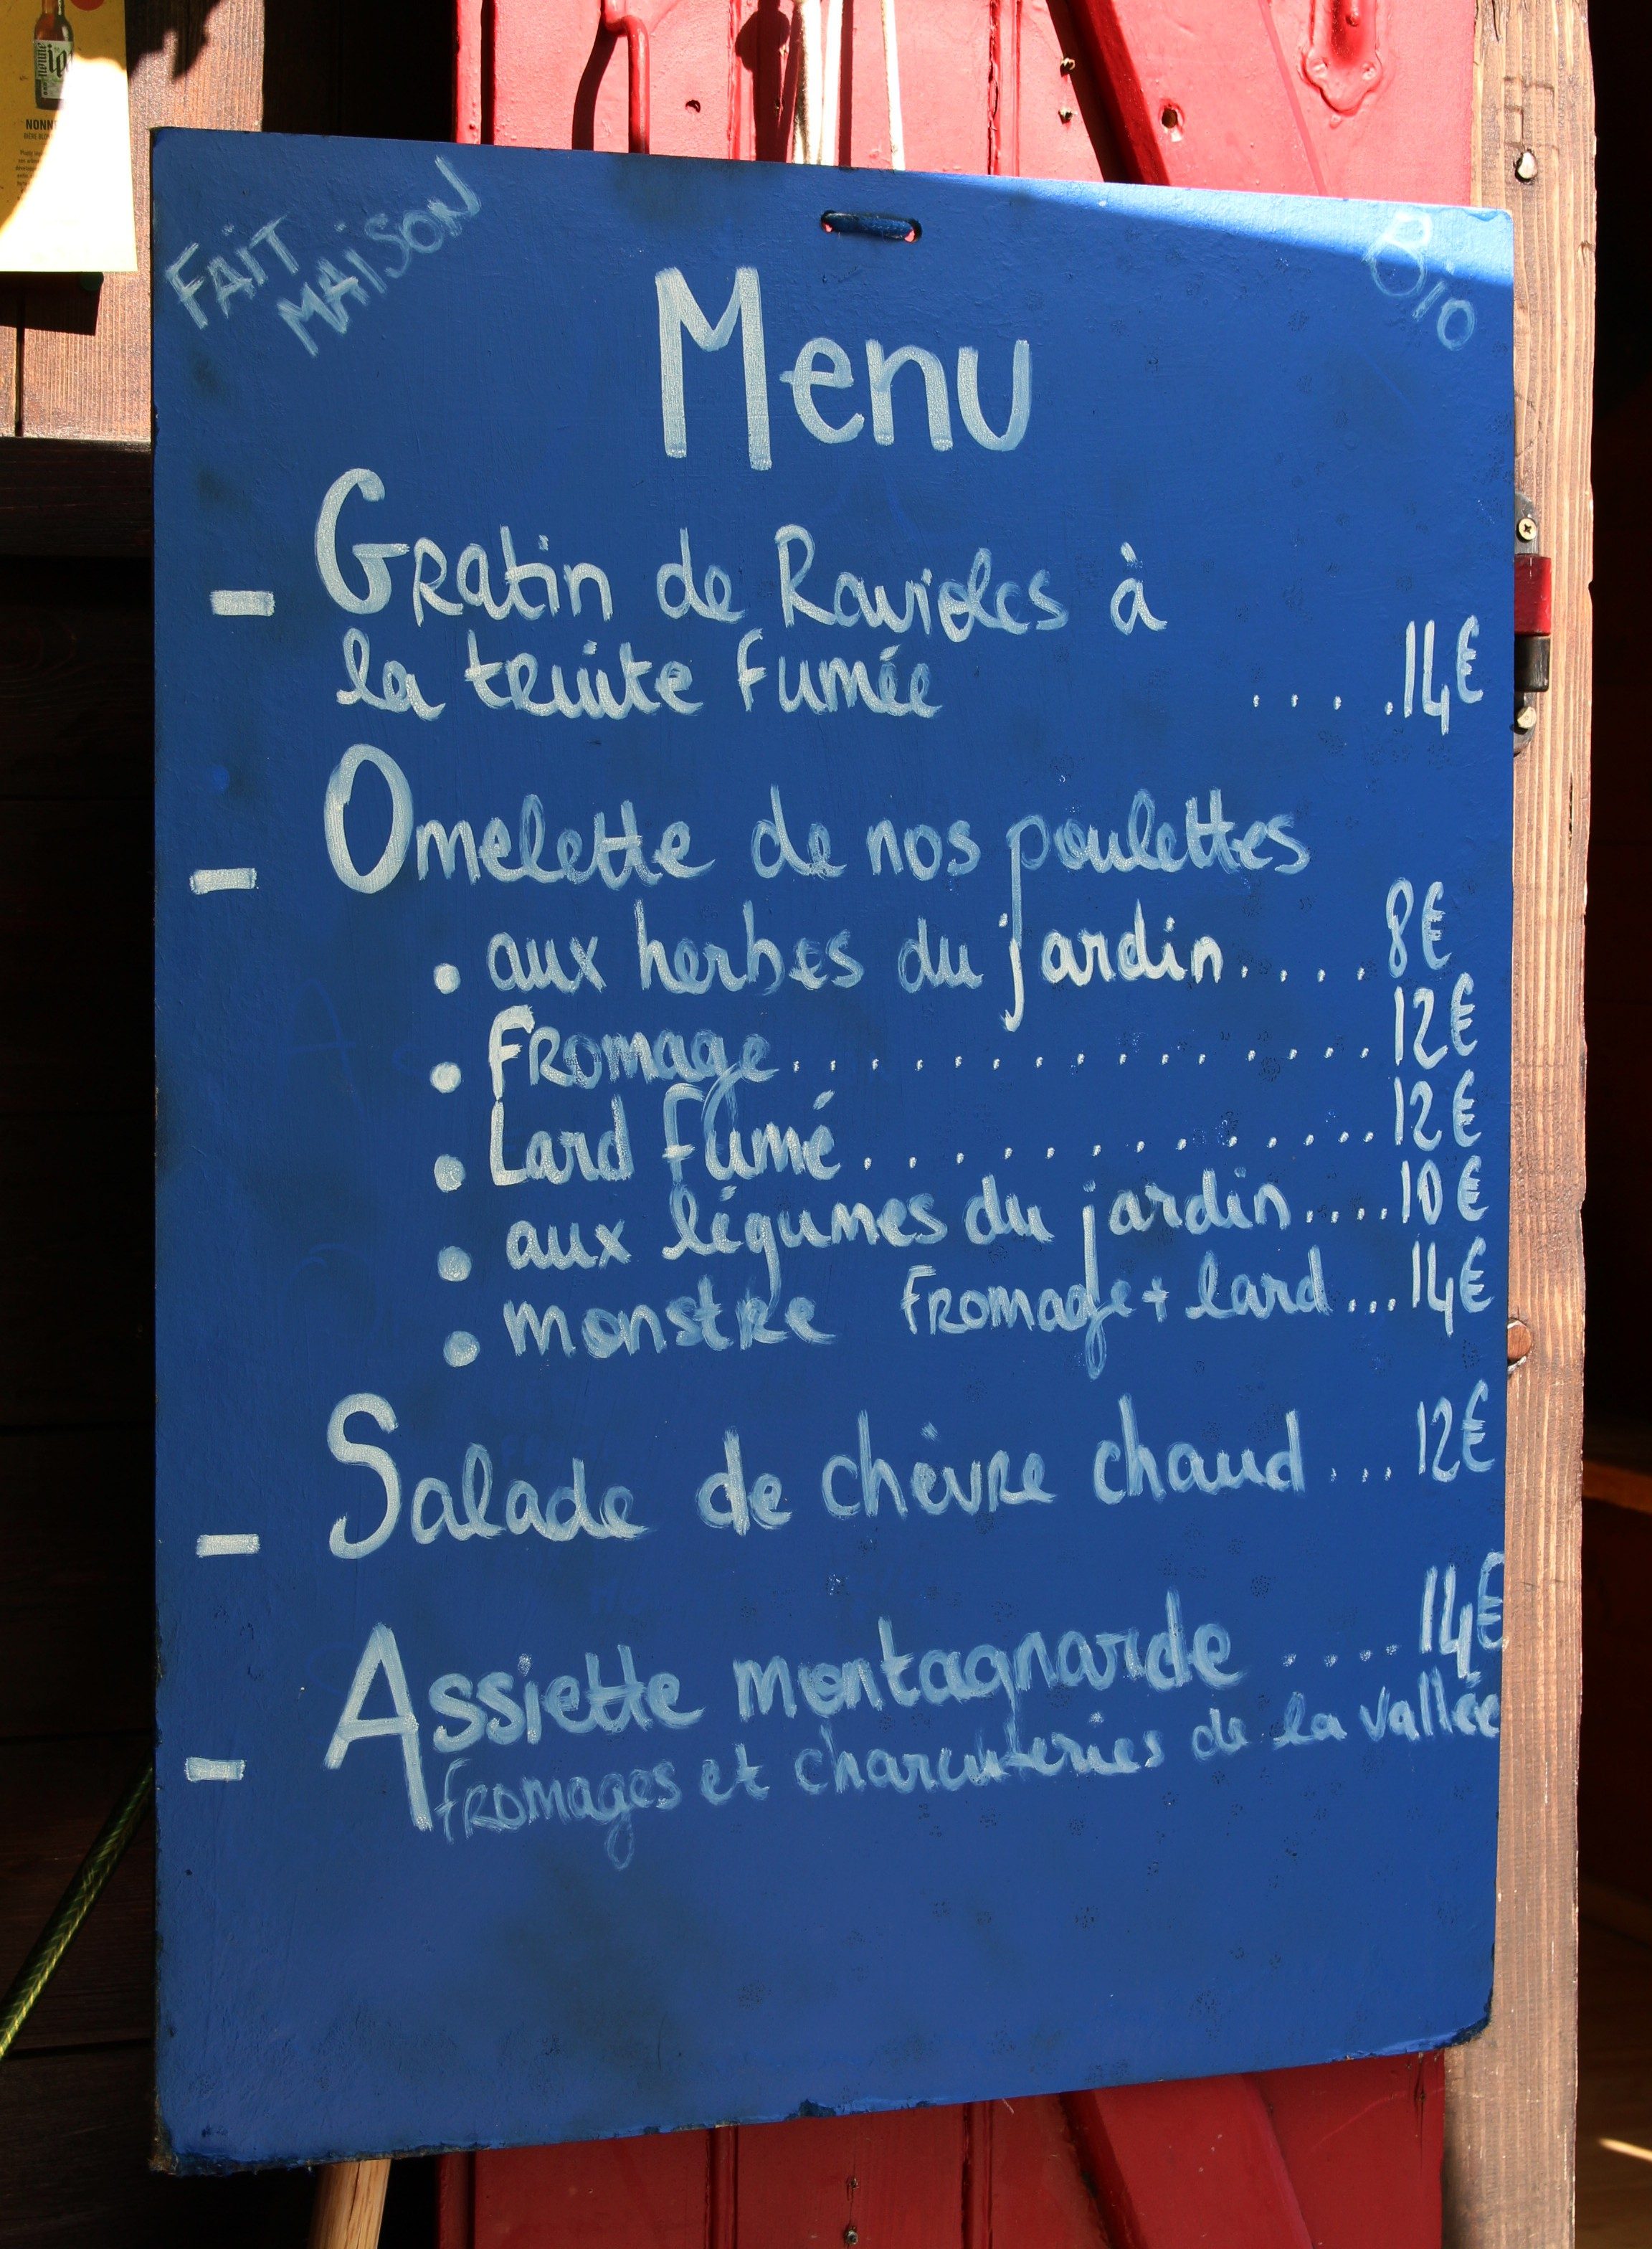 NONN
FAIT
MAISON
Bio
Menu
- Gratin de Ravioles à
la truite fumée .....14€
- Omelette de nos poulettes
• aux herbes du jardin.... 8€
• Fromage............... 12€
• Lard fumé............. 12€
• aux légumes du jardin....10€
• monstre fromage + lard...14€
- Salade de chèvre chaud ... 12€
- Assiette montagnarde ..... 14€
fromages et charcuteries de la vallée